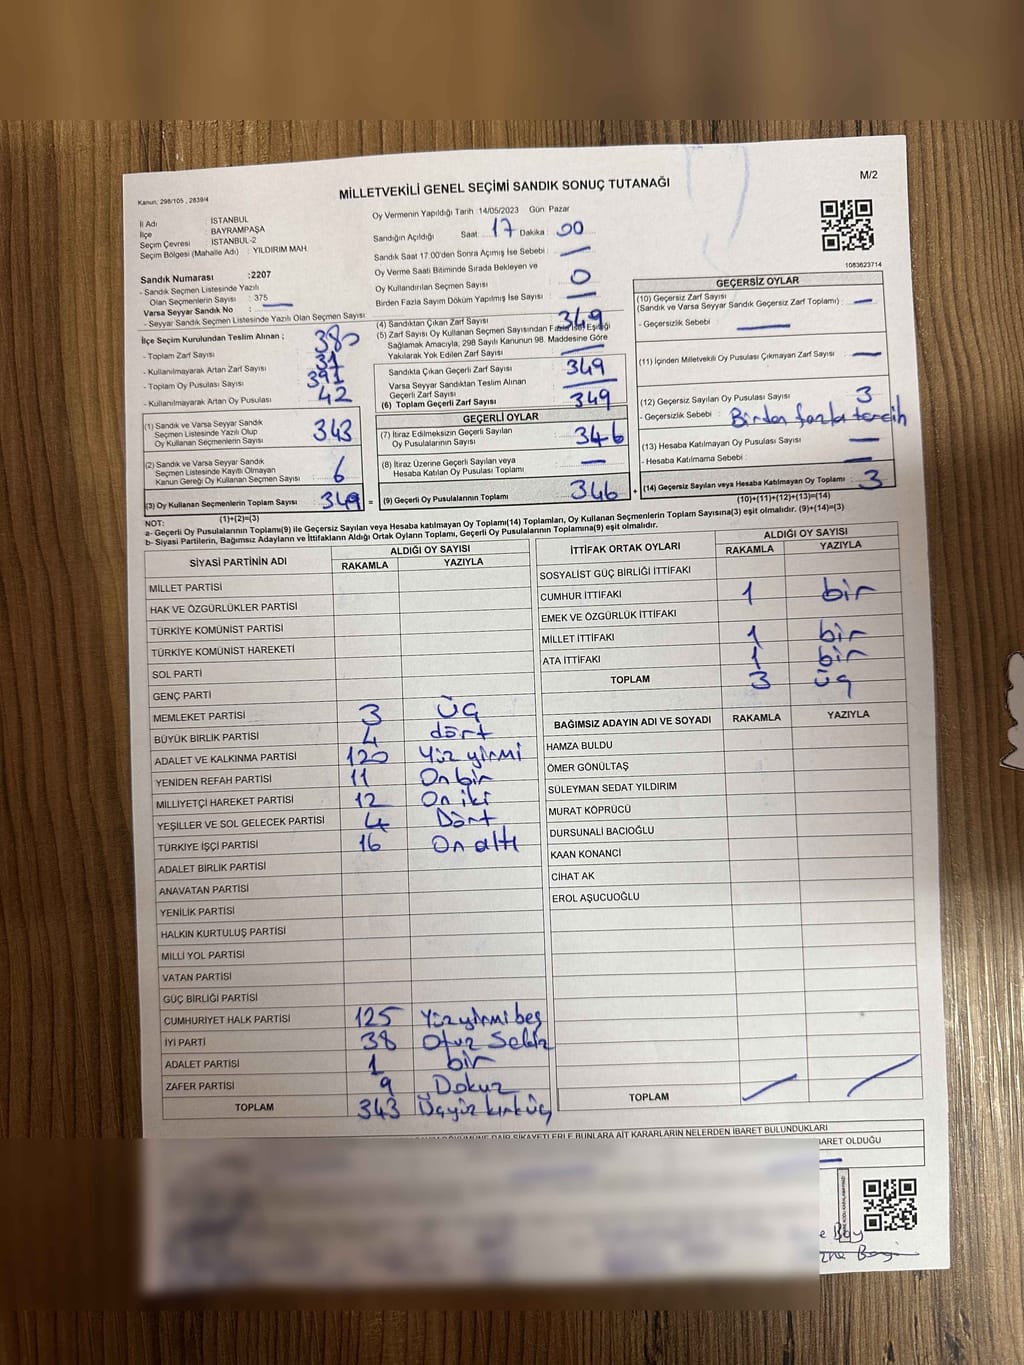 MİLLETVEKİLİ GENEL SEÇİMİ SANDIK SONUÇ TUTANAĞI
M/2
Kanun, 298/105 , 2839/4
İl Adı : İSTANBUL
İlçe : BAYRAMPAŞA
Seçim Çevresi : İSTANBUL-2
Seçim Bölgesi (Mahalle Adı) : YILDIRIM MAH
Sandık Numarası :2207
- Sandık Seçmen Listesinde Yazılı
Olan Seçmenlerin Sayısı : 375
Varsa Seyyar Sandık No :
- Seyyar Sandık Seçmen Listesinde Yazılı Olan Seçmen Sayısı
İlçe Seçim Kurulundan Teslim Alınan ;
- Toplam Zarf Sayısı 380
- Kullanılmayarak Artan Zarf Sayısı 31
- Toplam Oy Pusulası Sayısı 391
- Kullanılmayarak Artan Oy Pusulası 42
(1) Sandık ve Varsa Seyyar Sandık
Seçmen Listesinde Yazılı Olup
Oy Kullanan Seçmenlerin Sayısı 343
(2) Sandık ve Varsa Seyyar Sandık
Seçmen Listesinde Kayıtlı Olmayan
Kanun Gereği Oy Kullanan Seçmen Sayısı 6
(3) Oy Kullanan Seçmenlerin Toplam Sayısı 349 =
(1)+(2)=(3)
Oy Vermenin Yapıldığı Tarih :14/05/2023 Gün: Pazar
Sandığın Açıldığı Saat: 17 Dakika: 00
Sandık Saat 17:00'den Sonra Açılmış İse Sebebi : —
Oy Verme Saati Bitiminde Sırada Bekleyen ve
Oy Kullandırılan Seçmen Sayısı : 0
Birden Fazla Sayım Döküm Yapılmış İse Sayısı : —
(4) Sandıktan Çıkan Zarf Sayısı 349
(5) Zarf Sayısı Oy Kullanan Seçmen Sayısından Fazla İse, Eşitliği
Sağlamak Amacıyla, 298 Sayılı Kanunun 98. Maddesine Göre
Yakılarak Yok Edilen Zarf Sayısı —
Sandıkta Çıkan Geçerli Zarf Sayısı 349
Varsa Seyyar Sandıktan Teslim Alınan
Geçerli Zarf Sayısı —
(6) Toplam Geçerli Zarf Sayısı 349
GEÇERLİ OYLAR
(7) İtiraz Edilmeksizin Geçerli Sayılan
Oy Pusulalarının Sayısı 346
(8) İtiraz Üzerine Geçerli Sayılan veya
Hesaba Katılan Oy Pusulası Toplamı —
(9) Geçerli Oy Pusulalarının Toplamı 346 +
1083623714
GEÇERSİZ OYLAR
(10) Geçersiz Zarf Sayısı
(Sandık ve Varsa Seyyar Sandık Geçersiz Zarf Toplamı) : —
- Geçersizlik Sebebi : —
(11) İçinden Milletvekili Oy Pusulası Çıkmayan Zarf Sayısı : —
(12) Geçersiz Sayılan Oy Pusulası Sayısı : 3
- Geçersizlik Sebebi : Birden fazla tercih
(13) Hesaba Katılmayan Oy Pusulası Sayısı : —
- Hesaba Katılmama Sebebi : —
(14) Geçersiz Sayılan veya Hesaba Katılmayan Oy Toplamı : 3
(10)+(11)+(12)+(13)=(14)
NOT:
a- Geçerli Oy Pusulalarının Toplamı(9) ile Geçersiz Sayılan veya Hesaba katılmayan Oy Toplamı(14) Toplamları, Oy Kullanan Seçmenlerin Toplam Sayısına(3) eşit olmalıdır. (9)+(14)=(3)
b- Siyasi Partilerin, Bağımsız Adayların ve İttifakların Aldığı Ortak Oyların Toplamı, Geçerli Oy Pusulalarının Toplamına(9) eşit olmalıdır.
SİYASİ PARTİNİN ADI ALDIĞI OY SAYISI
RAKAMLA YAZIYLA
MİLLET PARTİSİ
HAK VE ÖZGÜRLÜKLER PARTİSİ
TÜRKİYE KOMÜNİST PARTİSİ
TÜRKİYE KOMÜNİST HAREKETİ
SOL PARTİ
GENÇ PARTİ
MEMLEKET PARTİSİ 3 Üç
BÜYÜK BİRLİK PARTİSİ 4 dört
ADALET VE KALKINMA PARTİSİ 120 Yüz yirmi
YENİDEN REFAH PARTİSİ 11 On bir
MİLLİYETÇİ HAREKET PARTİSİ 12 On iki
YEŞİLLER VE SOL GELECEK PARTİSİ 4 Dört
TÜRKİYE İŞÇİ PARTİSİ 16 On altı
ADALET BİRLİK PARTİSİ
ANAVATAN PARTİSİ
YENİLİK PARTİSİ
HALKIN KURTULUŞ PARTİSİ
MİLLİ YOL PARTİSİ
VATAN PARTİSİ
GÜÇ BİRLİĞİ PARTİSİ
CUMHURİYET HALK PARTİSİ 125 Yüzyirmibeş
İYİ PARTİ 38 Otuz Sekiz
ADALET PARTİSİ 1 bir
ZAFER PARTİSİ 9 Dokuz
TOPLAM 343 Üçyüz kırküç
İTTİFAK ORTAK OYLARI ALDIĞI OY SAYISI
RAKAMLA YAZIYLA
SOSYALİST GÜÇ BİRLİĞİ İTTİFAKI
CUMHUR İTTİFAKI 1 bir
EMEK VE ÖZGÜRLÜK İTTİFAKI
MİLLET İTTİFAKI 1 bir
ATA İTTİFAKI 1 bir
TOPLAM 3 üç
BAĞIMSIZ ADAYIN ADI VE SOYADI RAKAMLA YAZIYLA
HAMZA BULDU
ÖMER GÖNÜLTAŞ
SÜLEYMAN SEDAT YILDIRIM
MURAT KÖPRÜCÜ
DURSUNALİ BACIOĞLU
KAAN KONANCİ
CİHAT AK
EROL AŞUCUOĞLU
TOPLAM
DAİR ŞİKAYETLERLE BUNLARA AİT KARARLARIN NELERDEN İBARET BULUNDUKLARI
İBARET OLDUĞU